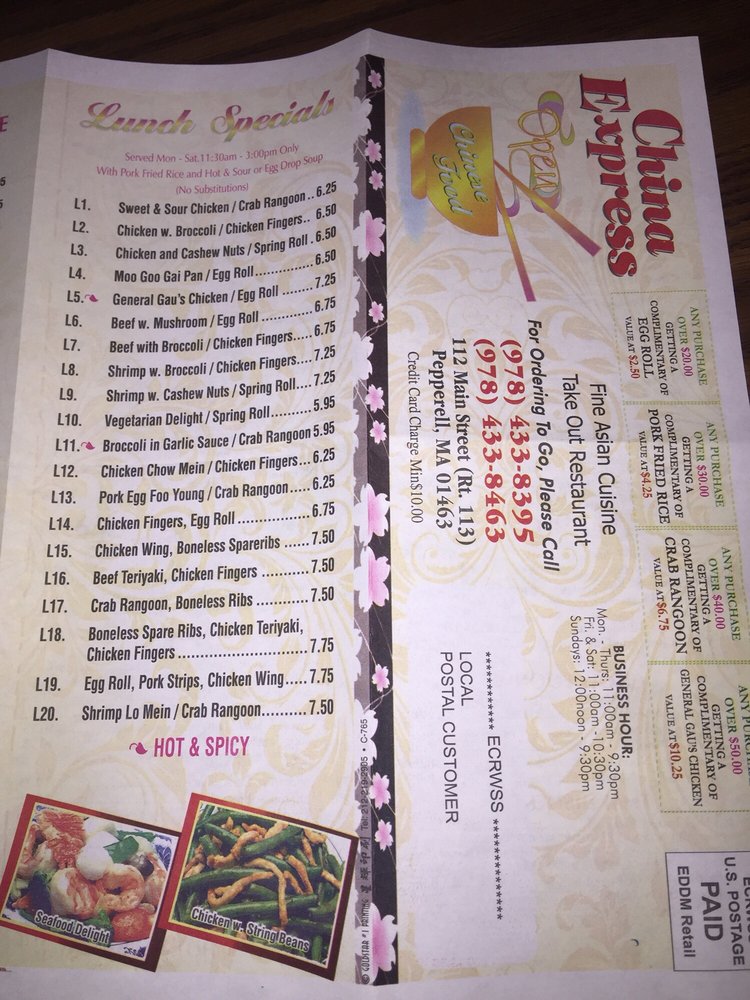 Lunch Specials
Served Mon - Sat.11:30am - 3:00pm Only
With Pork Fried Rice and Hot & Sour or Egg Drop Soup
(No Substitutions)
L1. Sweet & Sour Chicken / Crab Rangoon .. 6.25
L2. Chicken w. Broccoli / Chicken Fingers.. 6.50
L3. Chicken and Cashew Nuts / Spring Roll . 6.50
L4. Moo Goo Gai Pan / Egg Roll .............. 6.50
L5. General Gau's Chicken / Egg Roll ........ 7.25
L6. Beef w. Mushroom / Egg Roll ............. 6.75
L7. Beef with Broccoli / Chicken Fingers..... 6.75
L8. Shrimp w. Broccoli / Chicken Fingers.... 7.25
L9. Shrimp w. Cashew Nuts / Spring Roll.... 7.25
L10. Vegetarian Delight / Spring Roll.......... 5.95
L11. Broccoli in Garlic Sauce / Crab Rangoon 5.95
L12. Chicken Chow Mein / Chicken Fingers... 6.25
L13. Pork Egg Foo Young / Crab Rangoon ..... 6.25
L14. Chicken Fingers, Egg Roll ................ 6.75
L15. Chicken Wing, Boneless Spareribs ...... 7.50
L16. Beef Teriyaki, Chicken Fingers .......... 7.50
L17. Crab Rangoon, Boneless Ribs ........... 7.50
L18. Boneless Spare Ribs, Chicken Teriyaki,
Chicken Fingers ............................ 7.75
L19. Egg Roll, Pork Strips, Chicken Wing..... 7.75
L20. Shrimp Lo Mein / Crab Rangoon.......... 7.50
HOT & SPICY
Seafood Delight
Chicken w. String Beans
China
Express
Open
Chinese
Food
Fine Asian Cuisine
Take Out Restaurant
For Ordering To Go, Please Call
(978) 433-8395
(978) 433-8463
112 Main Street (Rt. 113)
Pepperell, MA 01463
Credit Card Charge Min$10.00
BUSINESS HOUR:
Mon. - Thurs: 11:00am - 9:30pm
Fri. & Sat: 11:00am -10:30pm
Sundays: 12:00noon - 9:30pm
************ ECRWSS ****************
LOCAL
POSTAL CUSTOMER
ANY PURCHASE
OVER $20.00
GETTING A
COMPLIMENTARY OF
EGG ROLL
VALUE AT $2.50
ANY PURCHASE
OVER $30.00
GETTING A
COMPLIMENTARY OF
PORK FRIED RICE
VALUE AT $4.25
ANY PURCHASE
OVER $40.00
GETTING A
COMPLIMENTARY OF
CRAB RANGOON
VALUE AT $6.75
ANY PURCHASE
OVER $50.00
GETTING A
COMPLIMENTARY OF
GENERAL GAU'S CHICKEN
VALUE AT $10.25
U.S. POSTAGE
PAID
EDDM Retail
C-765